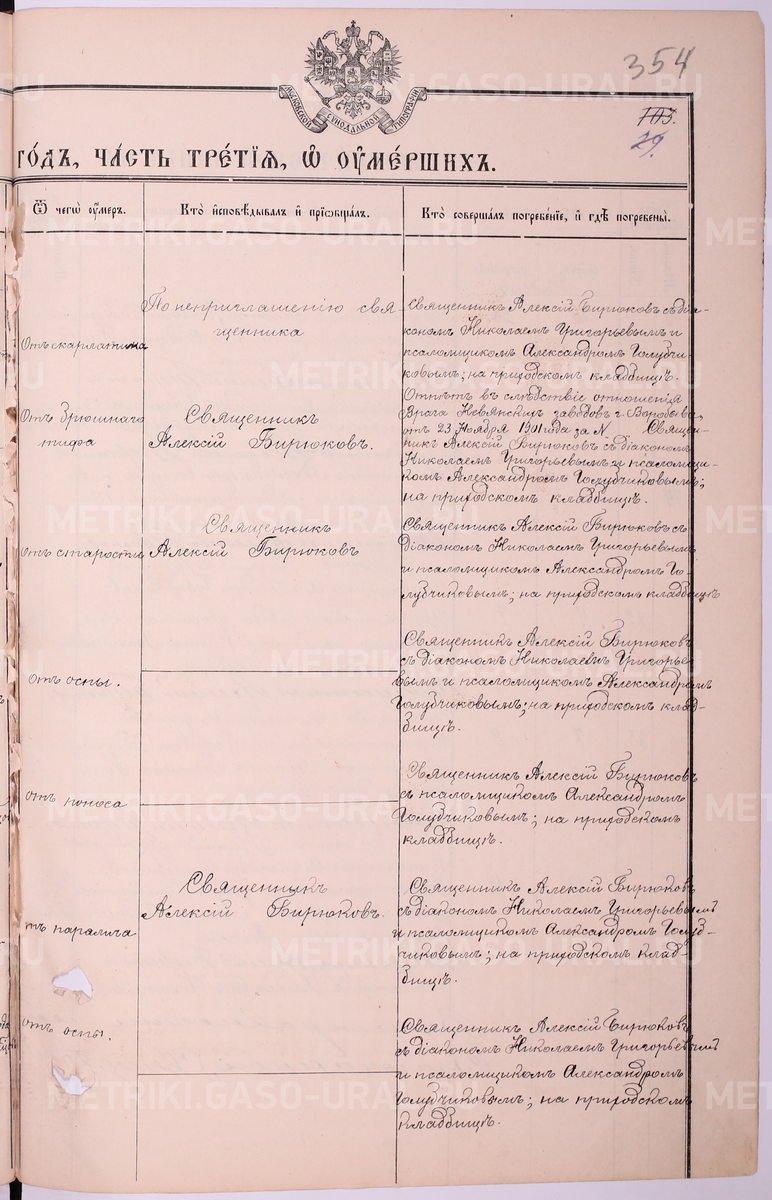 354
103.
29.
МОСКОВСКОЙ СѴНОДАЛЬНОЙ ТИПОГРАФІИ
ГО́ДЪ, ЧА́СТЬ ТРЕ́ТІѦ, Ѡ҆ ОУ҆МЕ́РШИХЪ.
Ѿ чегѡ̀ оу҆́меръ.
Кто̀ и҆сповѣ́дывалъ и҆ прїѡбща́лъ.
Кто̀ соверша́лъ погребе́нїе, и҆ гдѣ̀ погребены̀.
Отъ скарлатина
По неприглашенію свя
щенника
Священникъ Алексій Бирюковъ съ діа-
кономъ Николаемъ Григорьевымъ и
псаломщикомъ Александромъ Голубчи-
ковымъ; на приходскомъ кладбищѣ.
Отъ брюшнаго
тифа
Священникъ
Алексій Бирюковъ.
Отпѣтъ въ слѣдствіе отношенія
Врача Невянскихъ заводовъ г. Воробьева,
отъ 23 Ноября 1901 года за N Священ-
никъ Алексій Бирюковъ съ діакономъ
Николаемъ Григорьевымъ и псаломщи-
комъ Александромъ Голубчиковымъ;
на приходскомъ кладбищѣ.
Отъ старости
Священникъ
Алексій Бирюковъ
Священникъ Алексій Бирюковъ съ
діакономъ Николаемъ Григорьевымъ
и псаломщикомъ Александромъ Го-
лубчиковымъ; на приходскомъ кладбищѣ
Отъ оспы.
Священникъ Алексій Бирюковъ
съ діакономъ Николаемъ Григорье
вымъ и псаломщикомъ Александромъ
Голубчиковымъ; на приходскомъ клад-
бищѣ.
Отъ поноса
Священникъ Алексій Бирюковъ
съ псаломщикомъ Александромъ
Голубчиковымъ; на приходскомъ
кладбищѣ.
тъ паралича
Священникъ
Алексій Бирюковъ.
Священникъ Алексій Бирюковъ
съ діакономъ Николаемъ Григорьевымъ
и псаломщикомъ Александромъ Голуб-
чиковымъ; на приходскомъ клад-
бищѣ.
Отъ оспы.
Священникъ Алексій Бирюковъ
съ діакономъ Николаемъ Григорьевымъ
и псаломщикомъ Александромъ
Голубчиковымъ; на приходскомъ
кладбищѣ.
METRIKI.GASO-URAL.RU